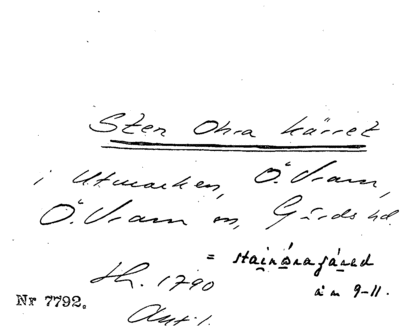 Sten Ohra kärret
i Utmarken, Ö. Vram,
Ö. Vram sn, Gärds hd.
= stainåragáred
åm 9-11.
th. 1790
Nr 7792.
Akt 1.